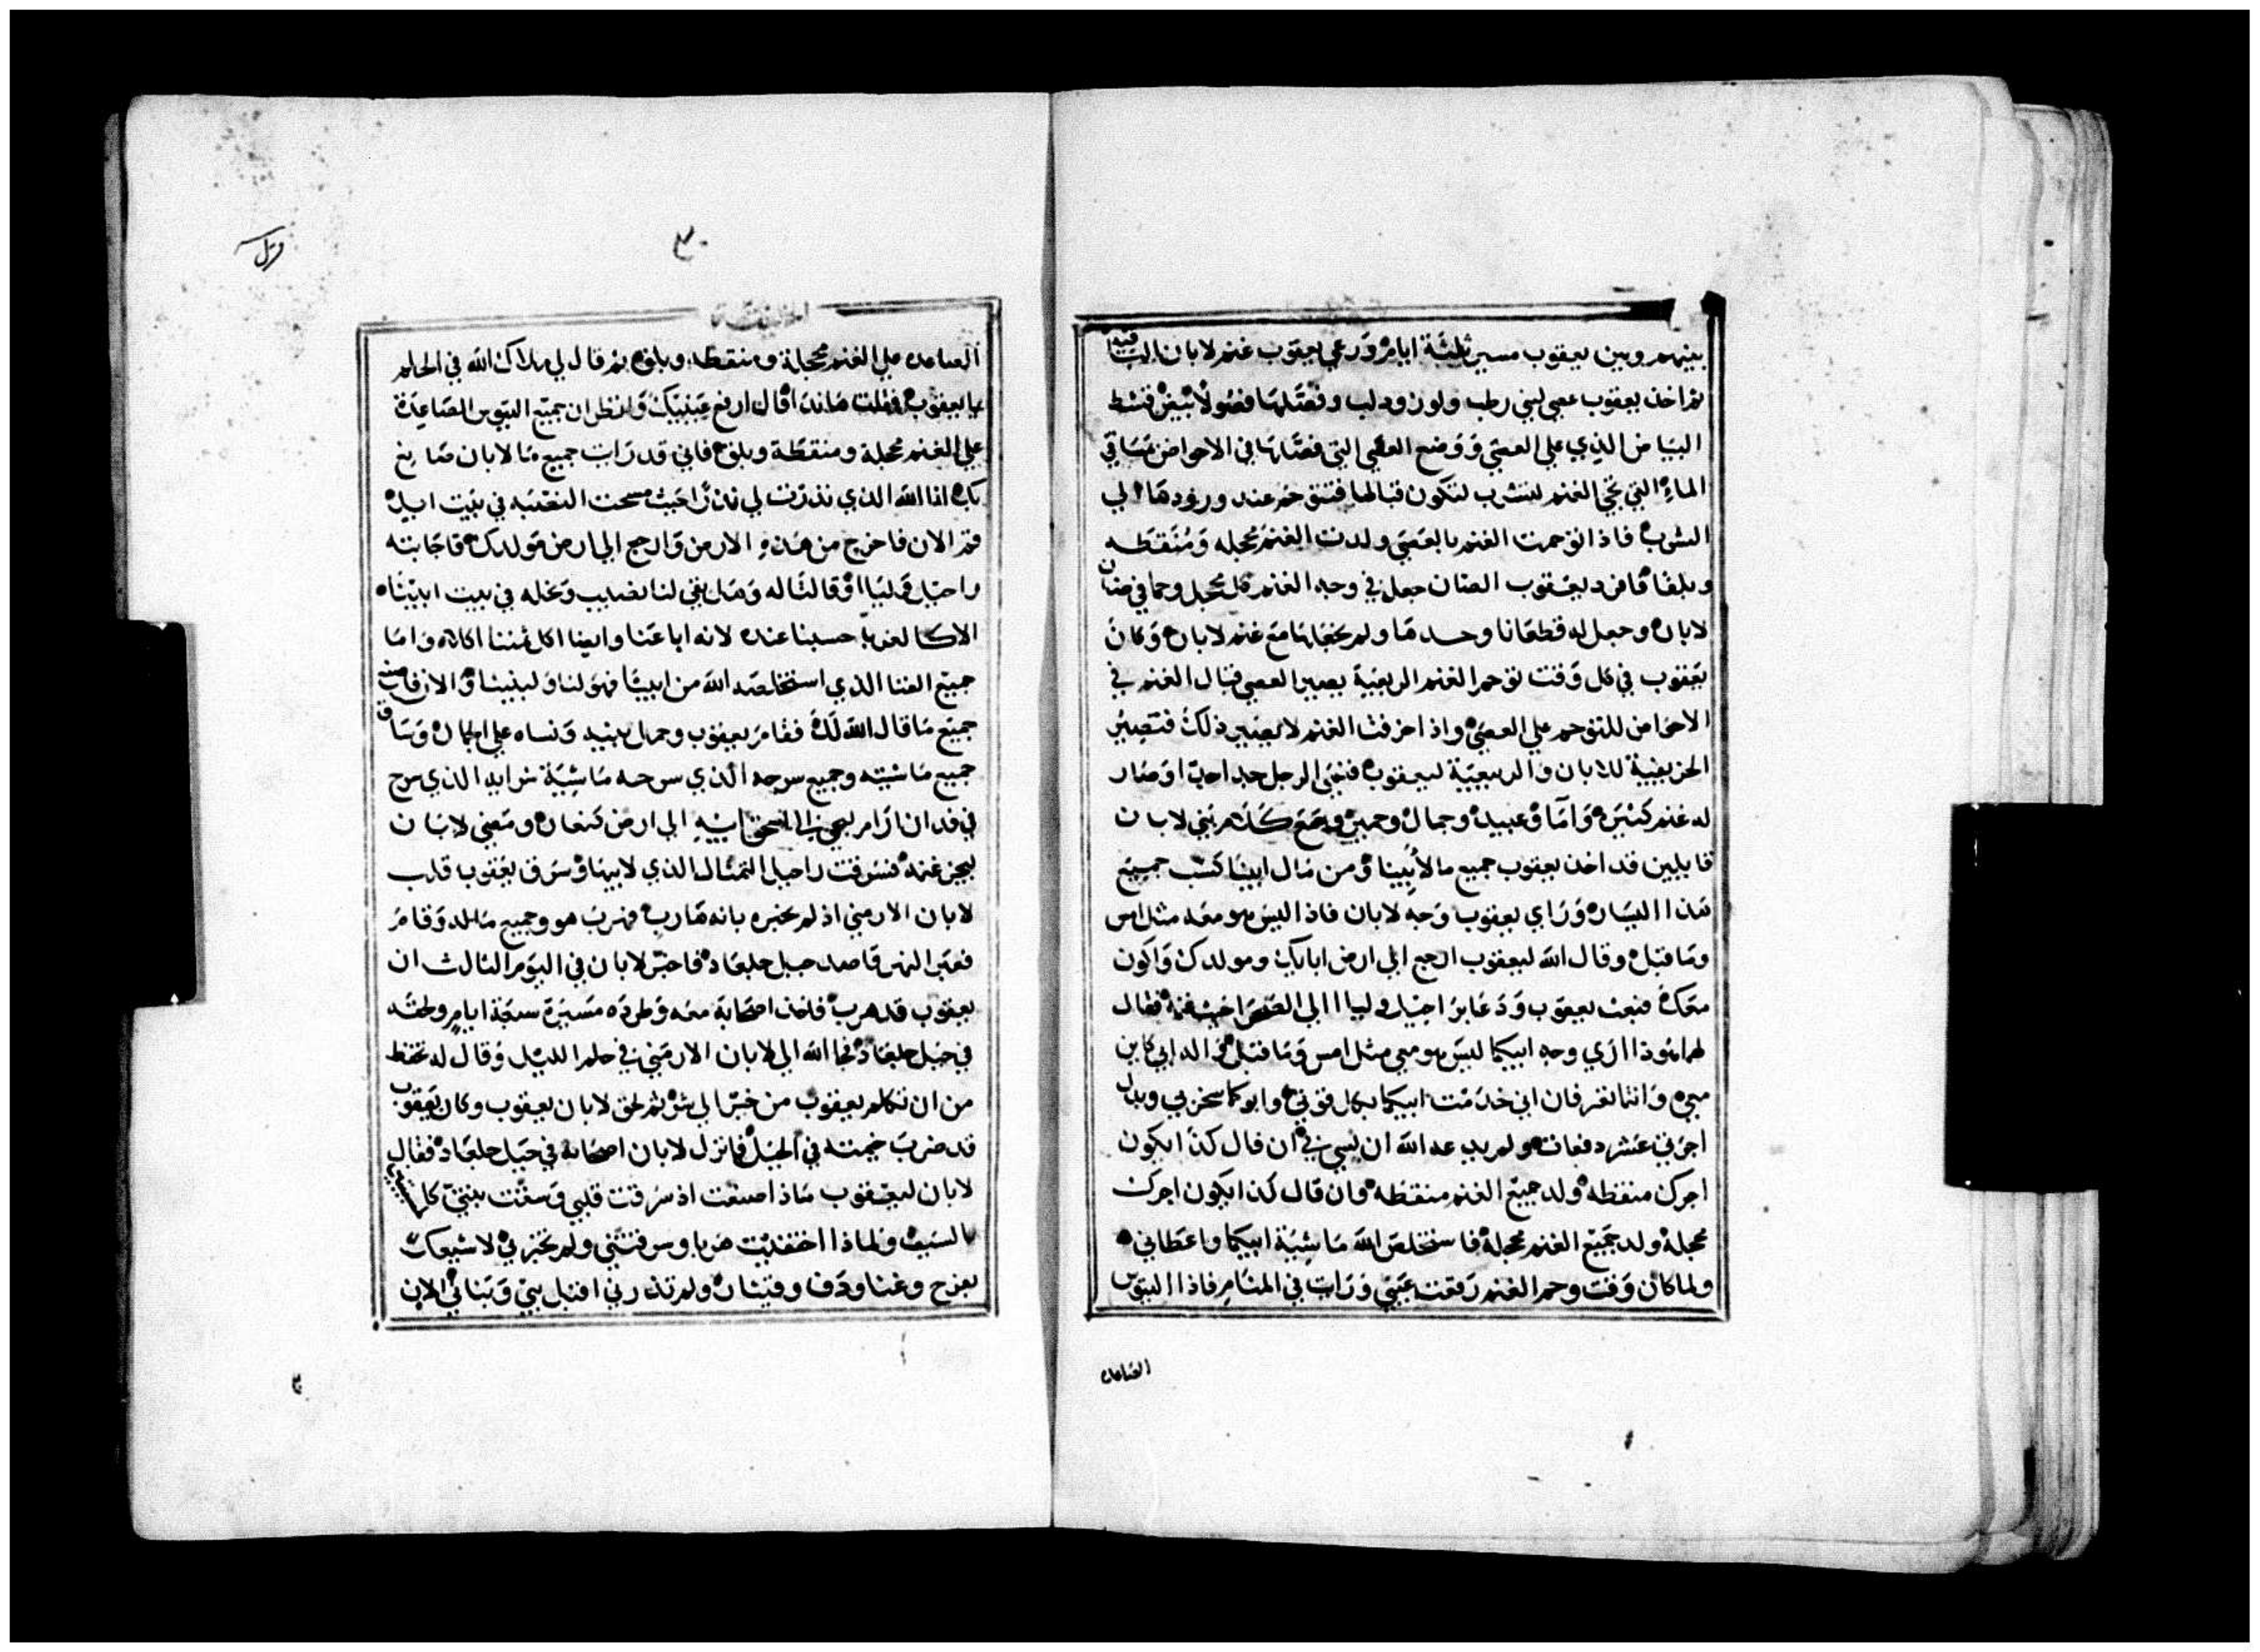 بينهم وبين يعقوب مسير ثلثة ايام ورعي يعقوب غنم لابان الباقيه
ثم اخذ يعقوب عصي لبني رطب ولوز ودلب وقصلها فصولا بيض قشط
البياض الذي علي العصي ووضع العصي التي فصلها في الاحواض مساقي
الماء التي تجي الغنم لتشرب لتكون قبالها فتتوحم عند ورودها الي
الشرب فاذا توحمت الغنم بالعصي ولدت الغنم محجله ومنقطه
وبلقا فافرد يعقوب الضان جعل في وجه الغنم كل محجل وحما في ضان
لابان وجعل له قطعانا وحدها ولم يجعلها مع غنم لابان وكان
يعقوب في كل وقت توحم الغنم الربعية يصير العصي قبال الغنم في
الاحواض للتوحم علي العصي واذا اخرفت الغنم لا يصير ذلك فتصير
الخريفية للابان والربيعية ليعقوب فغني الرجل جدا جدا وصار
له غنم كثيره واما وعبيد وجمال وحمير وسمع كلام بني لابان
قايلين قد اخذ يعقوب جميع ما لابينا ومن مال ابينا كسب جميع
هذا اليسار وراي يعقوب وجه لابان فاذا ليس هو معه مثل امس
وما قبل وقال الله ليعقوب ارجع الي ارض ابايك ومولدك واكون
معك فبعث يعقوب ودعا براحيل وليا الي الصحرا حيث غنمه فقال
لهما هوذا اري وجه ابيكما ليس هو معي مثل امس وما قبل واله ابي كاين
معي وانتما تعرفان اني خدمت ابيكما بكل قوتي وابوكما سخر بي وبدل
اجرتي عشر دفعات ولم يدعه الله ان يسي بي ان قال كذا يكون
اجرك منقطه ولد جميع الغنم منقطه وان قال كذا يكون اجرك
محجله ولد جميع الغنم محجله فاستخلص الله ماشية ابيكما واعطاني
ولما كان وقت وحم الغنم رفعت عيني ورات في المنام فاذا التيوس
الصاعده
٣٠
الخليقة
الصاعده علي الغنم محجلة ومنقطه وبلق ثم قال لي ملاك الله في الحلم
يا يعقوب فقلت هانذا قال ارفع عينيك وانظر ان جميع التيوس الصاعدة
علي الغنم محجلة ومنقطة وبلق فاني قد رات جميع ما لابان صانع
بك انا الله الذي نذرت لي نذرا حيث مسحت النصبه في بيت ايل
قم الان فاخرج من هذه الارض وارجع الي ارض مولدك فاجابته
راحيل وليا وقالتا له وهل بقي لنا نصيب ونحله في بيت ابينا
الا كالغربا حسبنا عنده لانه اباعنا وايضا اكل ثمننا اكلا واما
جميع الغنا الذي استخلصه الله من ابينا فهو لنا ولبنينا والان فاصنع
جميع ما قال الله لك فقام يعقوب وحمل بنيه ونساه علي الجمال وساق
جميع ماشيته وجميع سرحه الذي سرحه ماشية شرايه الذي سرح
في فدان ارام ليجي الي اسحق ابيه الي ارض كنعان ومضي لابان
ليجز غنمه فسرقت راحيل التمثال الذي لابيها وسرق يعقوب قلب
لابان الارمني اذ لم يخبره بانه هارب فهرب هو وجميع ماله وقام
فعبر النهر قاصد جبل جلعاد فاخبر لابان في اليوم الثالث ان
يعقوب قد هرب فاخذ اصحابه معه وطرده مسيرة سبعة ايام ولحقه
في جبل جلعاد فجا الله الي لابان الارمني في حلم الليل وقال له تحفظ
من ان تكلم يعقوب من خير الي شر ثم لحق لابان يعقوب وكان يعقوب
قد ضرب خيمته في الجبل فانزل لابان اصحابه في جبل جلعاد فقال
لابان ليعقوب ماذا صنعت اذ سرقت قلبي وسقت بنتي كالسبي
بالسيف ولماذا اختفيت هربا وسرقتني ولم تخبرني لاشيعك
بفرح وغنا ودف وقيثار ولم تذرني اقبل بني وبناتي الان